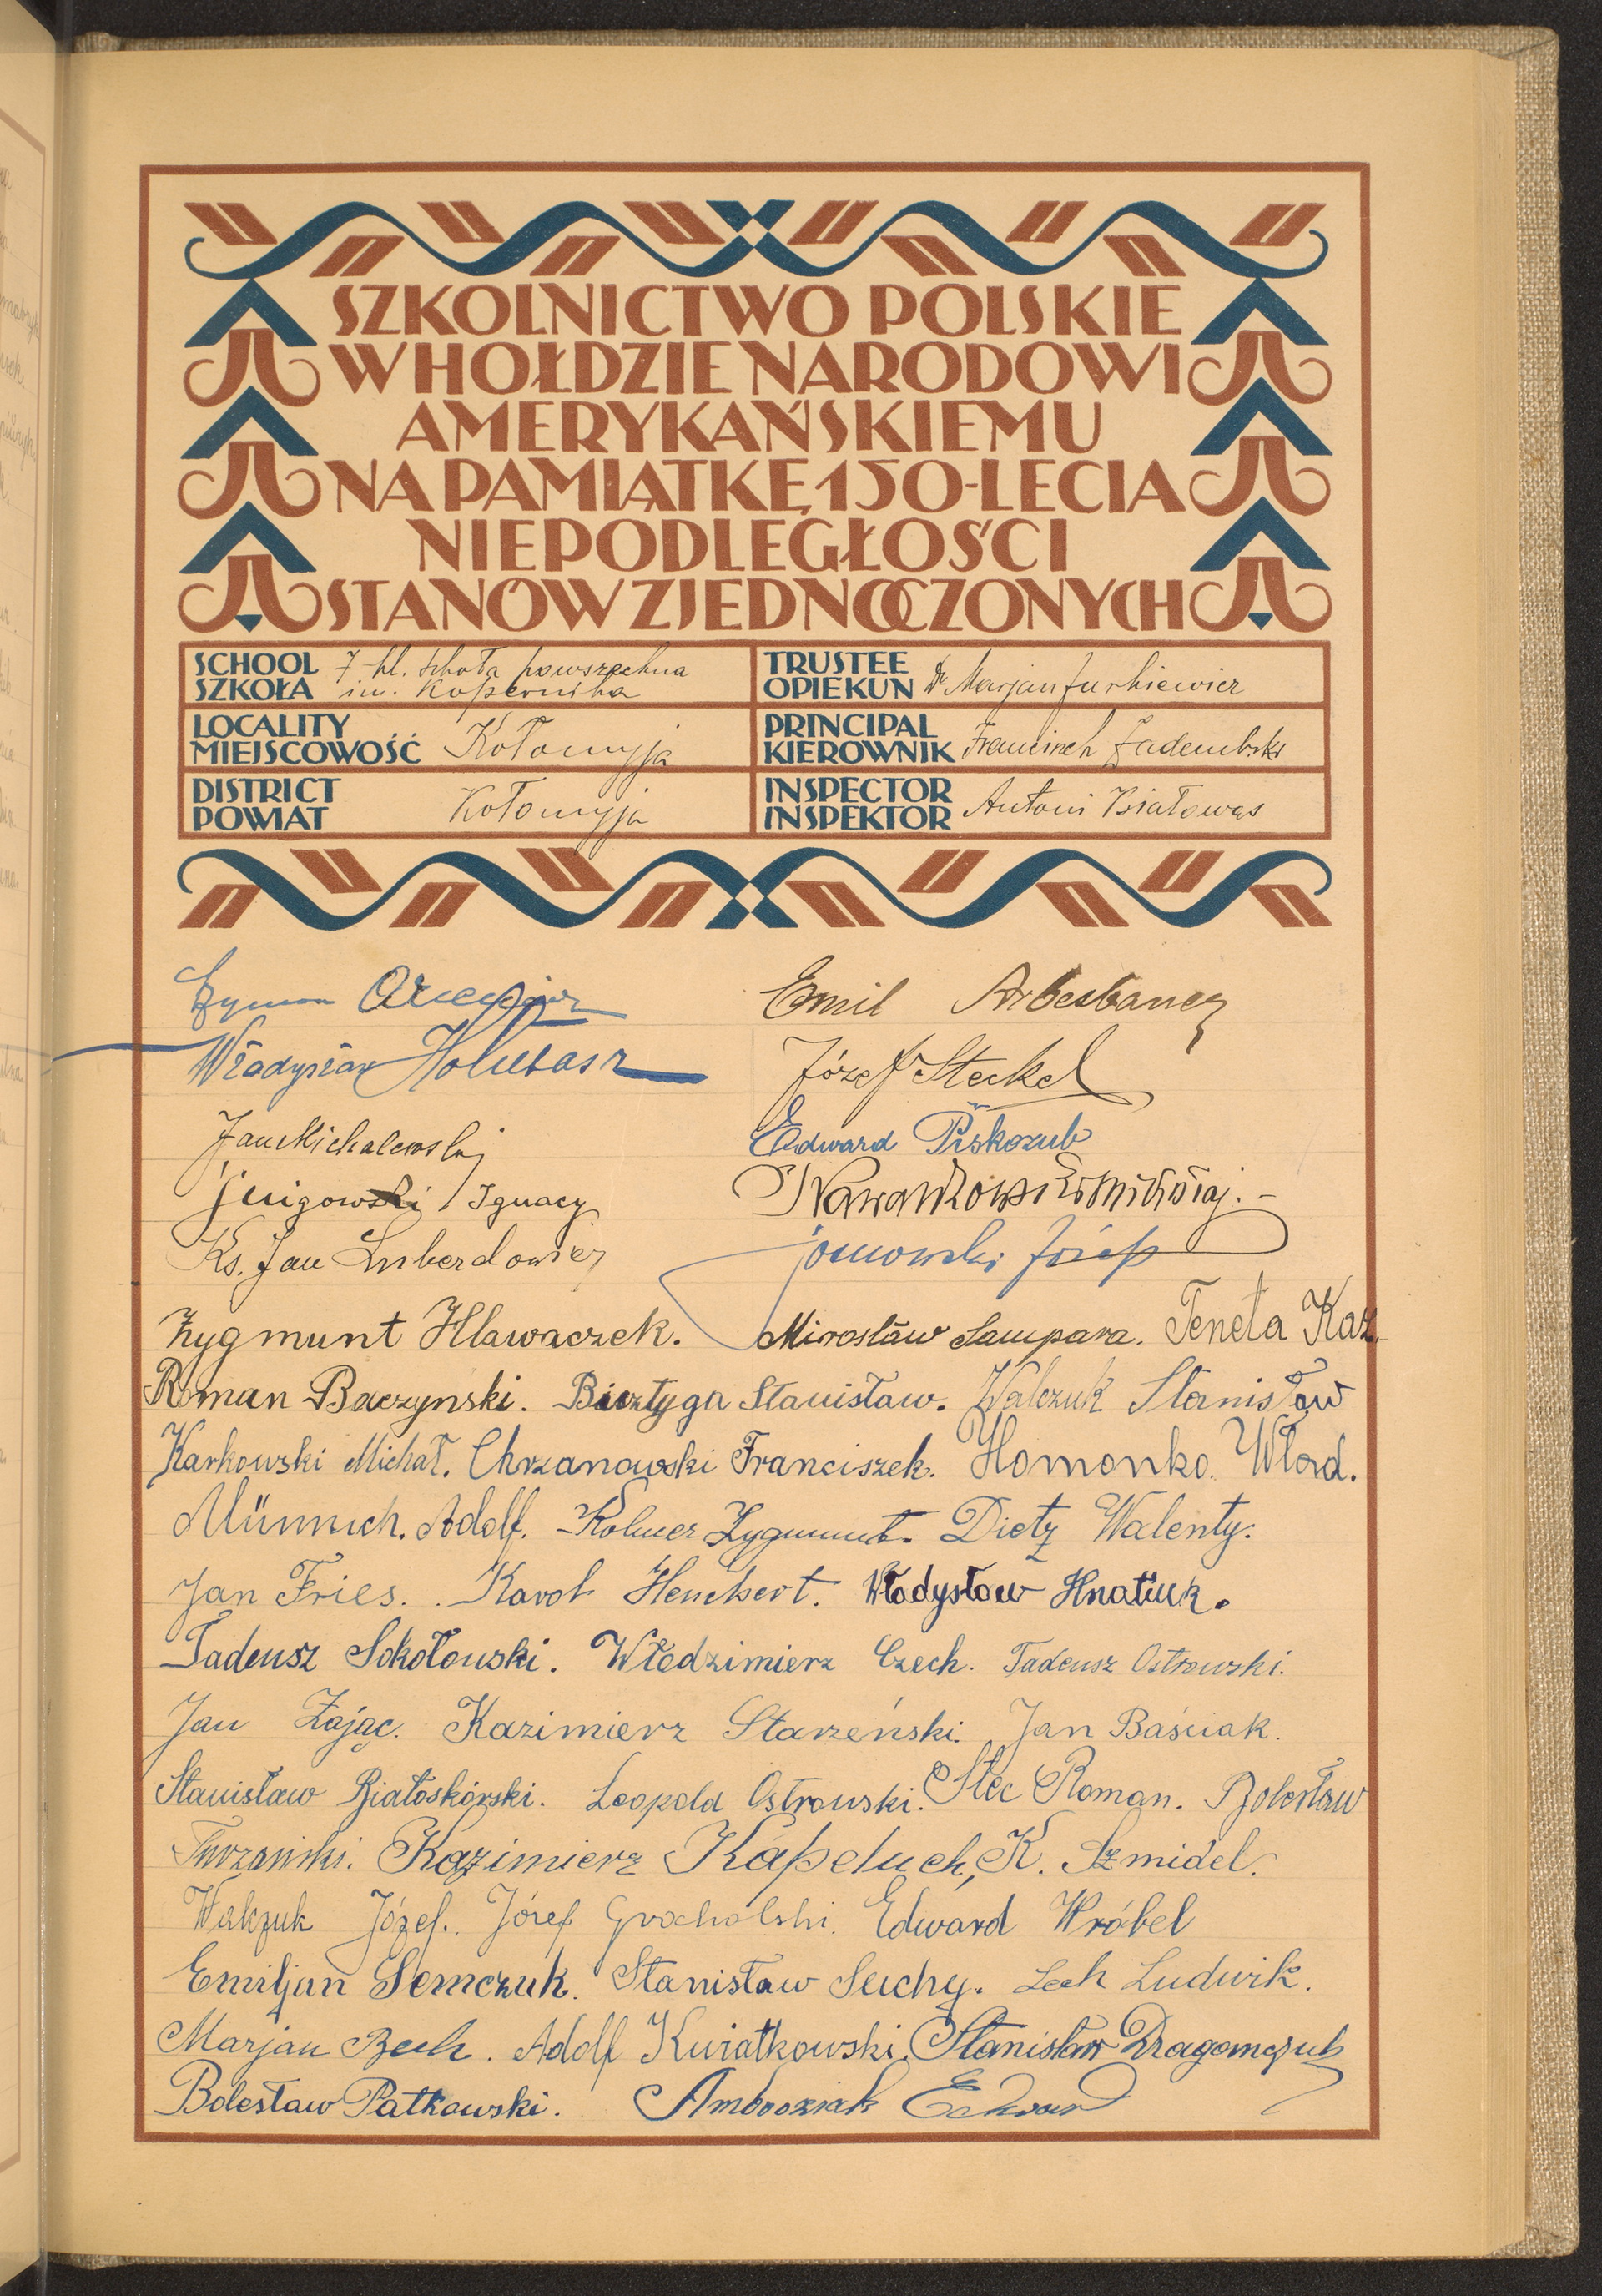 SZKOLNICTWO POLSKIE
W HOŁDZIE NARODOWI
AMERYKAŃSKIEMU
NA PAMIĄTKĘ 150-LECIA
NIEPODLEGŁOŚCI
STANÓW ZJEDNOCZONYCH
SCHOOL
SZKOŁA
7 kl. szkoła powszechna
im. Kopernika
TRUSTEE
OPIEKUN
Dr Marjan Jurkiewicz
LOCALITY
MIEJSCOWOŚĆ
Kołomyja
PRINCIPAL
KIEROWNIK
Franciszek Zadembski
DISTRICT
POWIAT
Kołomyja
INSPECTOR
INSPEKTOR
Antoni Białowąs
Szymon
Emil Arbesbauer
Władysław Holubasz
Józef Steckel
Jan Michalewski
Edward Piskozub
Ignacy
Ks. Jan Luberdowicz
Józef
Zygmunt Hlawaczek. Mirosław Sampara. Teneta Kaz.
Roman Baczynski. Bisztyga Stanisław. Walczuk Stanisław
Karkowski Michał. Chrzanowski Franciszek. Homonko Wład.
Münnich. Adolf. Kolmer Zygmunt. Dietz Walenty.
Jan Fries. Karol Henchert. Władysław Hnatiuk.
Tadeusz Sokołowski. Włodzimierz Czech. Tadeusz Ostrowski.
Jan Zając. Kazimierz Starzeński. Jan Baściak.
Stanisław Białoskórski. Leopold Ostrowski. Stec Roman. Bolesław
Turzański. Kazimierz Kapeluch, K. Szmidel.
Walczuk Józef. Józef Grocholski. Edward Wróbel
Emiljan Semczuk. Stanisław Suchy. Lech Ludwik.
Marjan Bech. Adolf Kwiatkowski. Stanisław Dragomczuk
Bolesław Patkowski. Ambroziak Edward